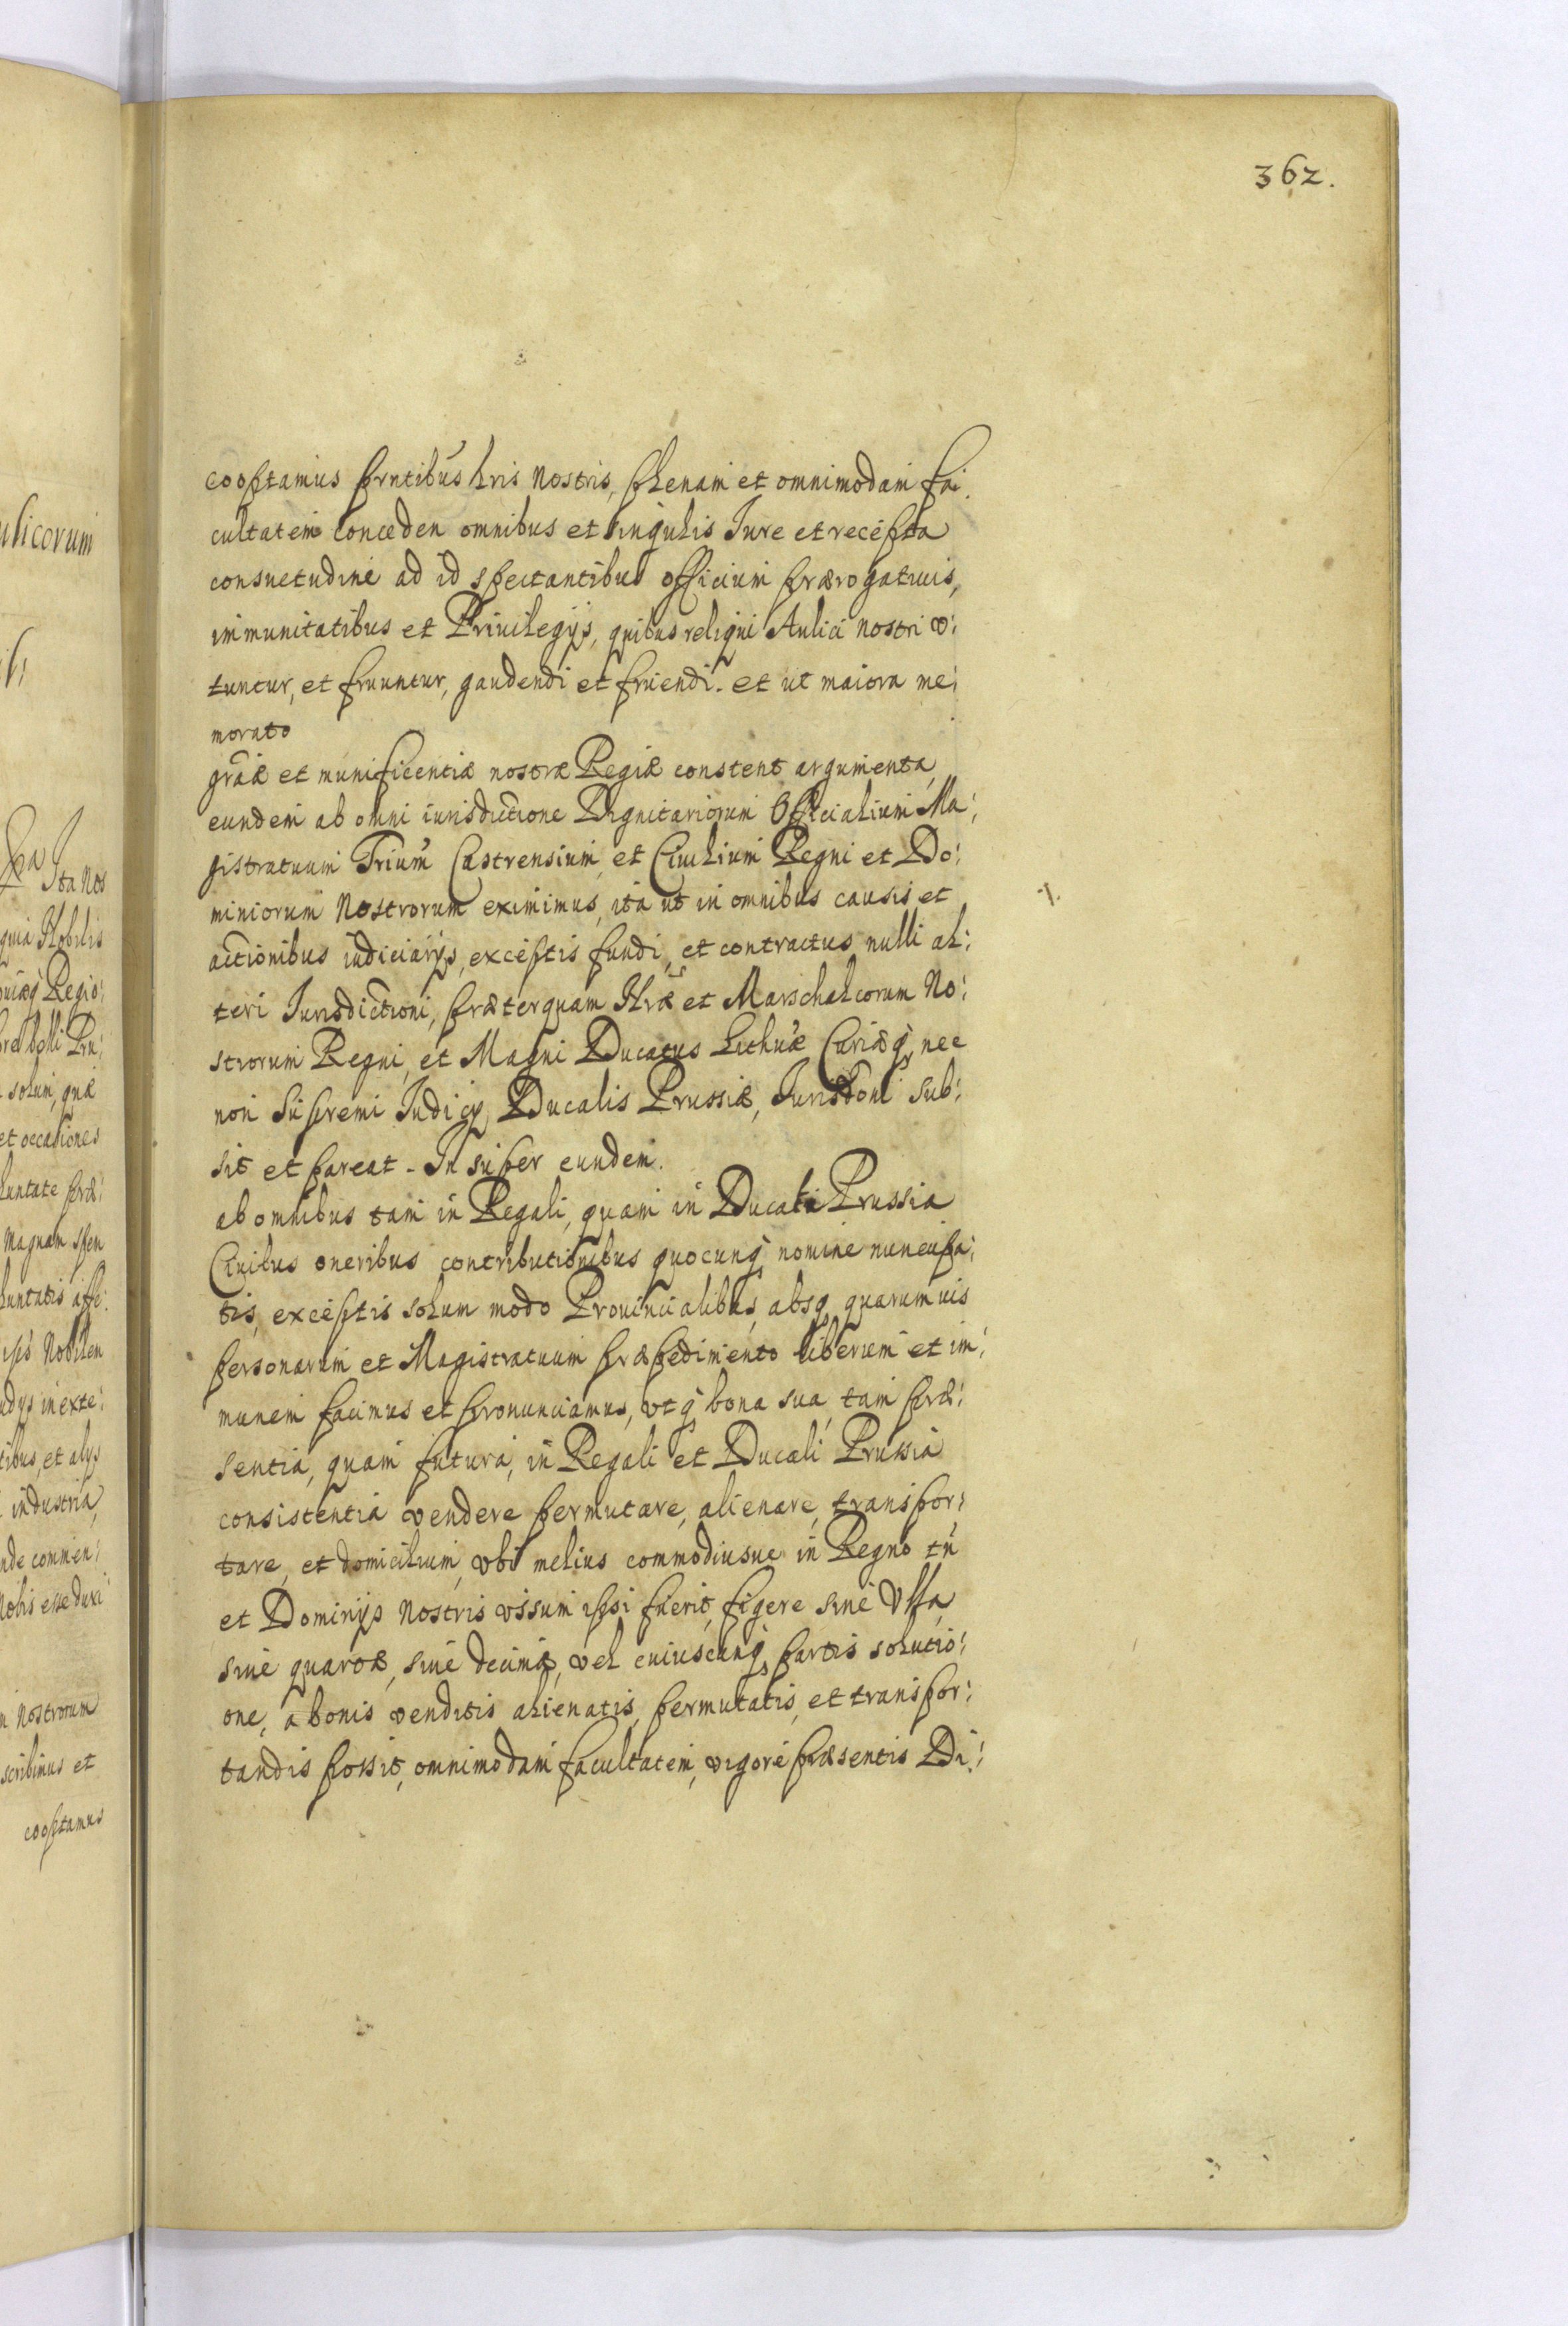 362.
cooptamus prntibus lris nostris, plenam et omnimodam fa:
cultatem conceden omnibus et singulis Iure et recepta
consuetudine ad id spectantibus officium prærogatiuis,
immunitatibus et Priuilegijs, quibus reliqui Aulici nostri v:
tuntur, et fruuntur, gaudendi et fruendi. et ut maiora me:
morato
grãæ et munificentiæ nostræ Regiæ constent argumenta,
eundem ab omni iurisdictione Dignitariorum Officialium Ma:
gistratuum Trium Castrensium, et Ciuilium Regni et Do:
miniorum Nostrorum eximimus, ita ut in omnibus causis et
actionibus iudiciarijs, exceptis fundi, et contractus nulli al:
teri Iurisdictioni, præterquam Nræ et Marschalcorum No:
strorum Regni, et Magni Ducatus Lithuæ Curiæq, nec
non Supremi Iudicij Ducalis Prussiæ, Iurisdoni sub:
sit et pareat. Insuper eundem.
ab omnibus tam in Regali, quam in Ducali Prussia
Ciuibus oneribus contributionibus quocunq nomine nuncupa:
tis, exceptis solum modo Prouincialibus, absq quarumuis
personarum et Magistratuum præpedimento liberum et im:
munem facimus et pronunciamus, vtq bona sua, tam præ:
sentia, quam futura, in Regali et Ducali Prussia
consistentia vendere permutare, alienare, transpor:
tare, et domicilium, vbi melius commodiusue in Regno tñ
et Dominijs Nostris vissum ipsi fuerit, figere sine Vlla,
siue quartæ, siue decimæ, vel cuiuscunq partis solutio:
one, a bonis venditis alienatis, permutatis, et transpor:
tandis possit, omnimodam facultatem, vigore præsentis Di:
ulicorum
Ita nos
quia Nobilis
Regio:
solum, quæ
et occasiones
luntate præ:
magnam
luntatis affe:
Nobilem
inexte:
tibus, et alijs
industria,
nde commen:
Nobis esse duxi
m Nostrorum
scribimus et
cooptamus